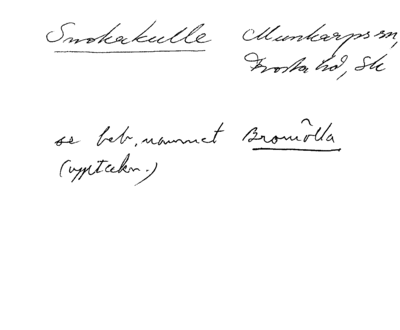 Snokakulle Munkarps sn,
Frosta hd, Sk
se beb.namnet Bromölla
(upptekn.)